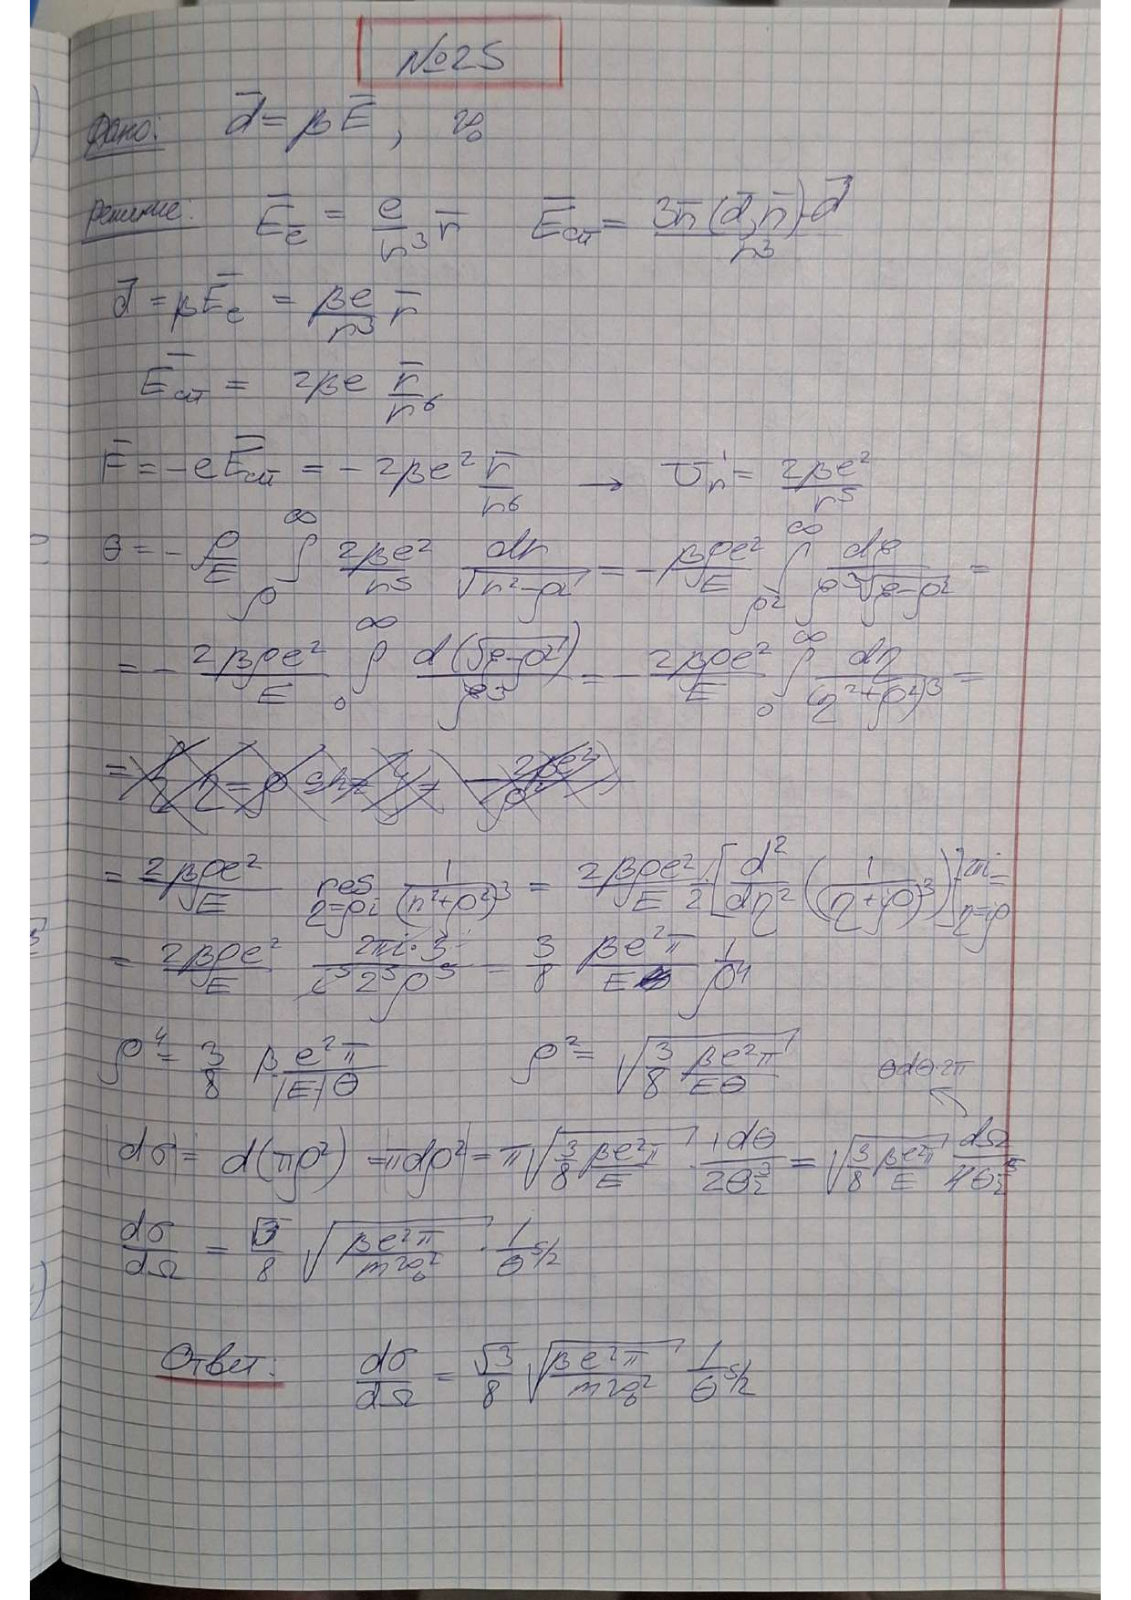 №25
Дано: d⃗ = βE̅, v₀
Решение: E̅ₑ = e/r³ r̅ E̅ₐₜ = (3n̅(d⃗,n̅)-d⃗)/r³
d⃗ = βE̅ₑ = βe/r³ r̅
E̅ₐₜ = 2βe r̅/r⁶
F̅ = -eE̅ₐₜ = -2βe² r̅/r⁶ → U'ᵣ = 2βe²/r⁵
θ = -ρ/E ∫_ρ^∞ 2βe²/r⁵ dr/√(r²-ρ²) = -βρe²/E ∫_{ρ²}^∞ dξ/(ξ³√(ξ-ρ²)) =
= -2βρe²/E ∫_0^∞ d(√(ξ-ρ²))/ξ³ = -2βρe²/E ∫_0^∞ dη/(η²+ρ²)³ =
= 2βρe²/E res_{η=ρi} 1/(η²+ρ²)³ = 2βρe²/E 1/2 [d²/dη² (1/(η+iρ)³)]_{η=iρ} 2πi =
= 2βρe²/E 2πi·3/(i⁵2⁵ρ⁵) = 3/8 βe²π/E 1/ρ⁴
ρ⁴ = 3/8 β e²π/(|E|θ) ρ² = √(3/8 βe²π/(Eθ)) θdθ·2π
|dσ| = d(πρ²) = |πdρ²| = π√(3/8 βe²π/E) · 1dθ/(2θ^{3/2}) = √(3/8 βe²π/E) dΩ/(4θ^{5/2})
dσ/dΩ = √3/8 √(βe²π/(mv₀²)) · 1/θ^{5/2}
Ответ: dσ/dΩ = √3/8 √(βe²π/(mv₀²)) 1/θ^{5/2}